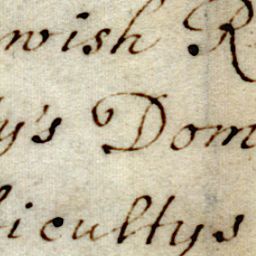 wish R
y's Dom
icultys